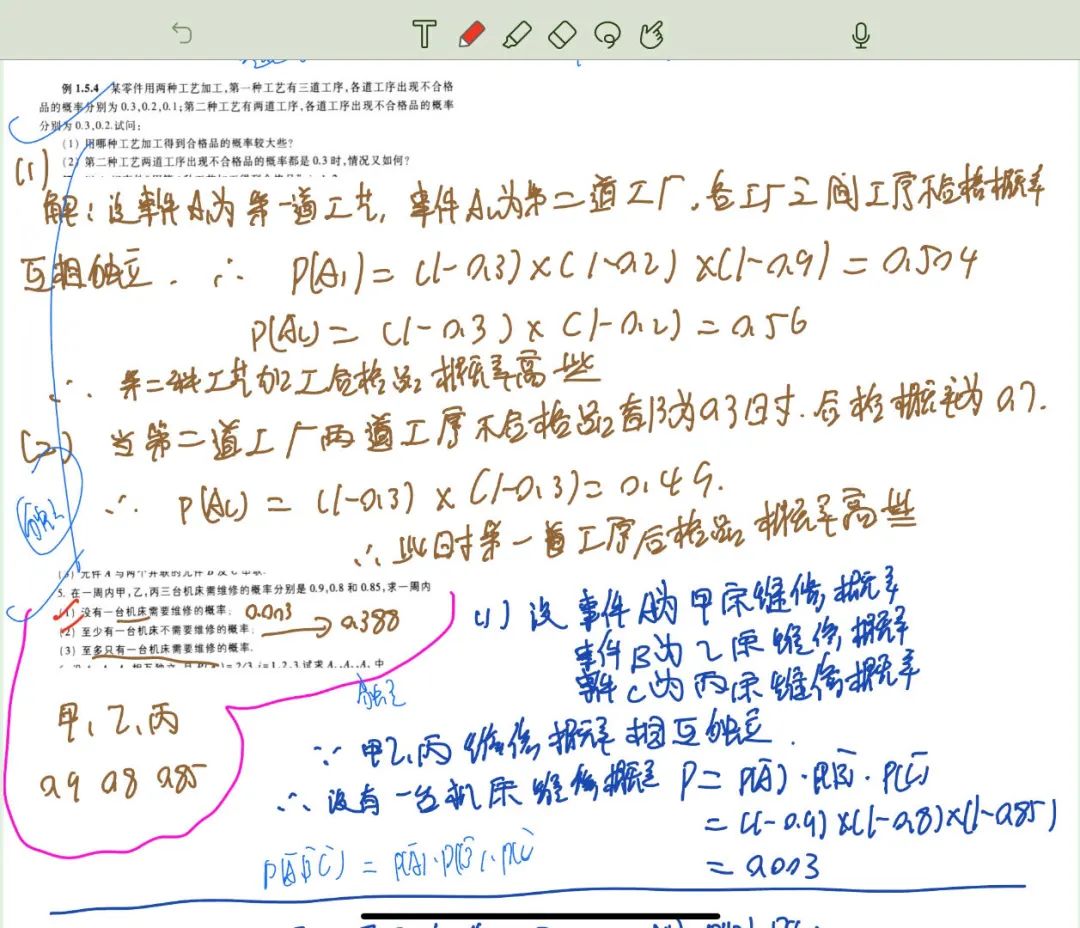 例 1.5.4 某零件用两种工艺加工,第一种工艺有三道工序,各道工序出现不合格
品的概率分别为0.3,0.2,0.1;第二种工艺有两道工序,各道工序出现不合格品的概率
分别为0.3,0.2.试问:
(1) 用哪种工艺加工得到合格品的概率较大些?
(2) 第二种工艺两道工序出现不合格品的概率都是0.3时,情况又如何?
(1)
解:设事件A₁为第一道工艺,事件A₂为第二道工厂,各工厂之间工序不合格概率
互相独立. ∴ P(A₁)=(1-0.3)×(1-0.2)×(1-0.9)=0.504
P(A₂)=(1-0.3)×(1-0.2)=0.56
∴ 第二种工艺加工合格品概率高些
(2) 当第二道工厂两道工序不合格品都为0.3时.合格概率为0.7.
∴ P(A₂)=(1-0.3)×(1-0.3)=0.49.
∴此时第一道工序合格品概率高些
(3) 元件A与两个并联的元件B及C串联.
5. 在一周内甲,乙,丙三台机床需维修的概率分别是0.9,0.8和0.85,求一周内
(1) 没有一台机床需要维修的概率; 0.003
(2) 至少有一台机床不需要维修的概率; → 0.388
(3) 至多只有一台机床需要维修的概率.
=2/3,i=1,2,3,试求A₁,A₂,A₃中
甲、乙、丙
0.9 0.8 0.85
(1) 设事件A为甲床维修概率
事件B为乙床维修概率
事件C为丙床维修概率
∵ 甲乙、丙维修概率相互独立.
∴ 没有一台机床维修概率 P=P(Ā)·P(B̄)·P(C̄)
=(1-0.9)×(1-0.8)×(1-0.85)
=0.003
P(ĀB̄C̄)=P(Ā)·P(B̄)·P(C̄)